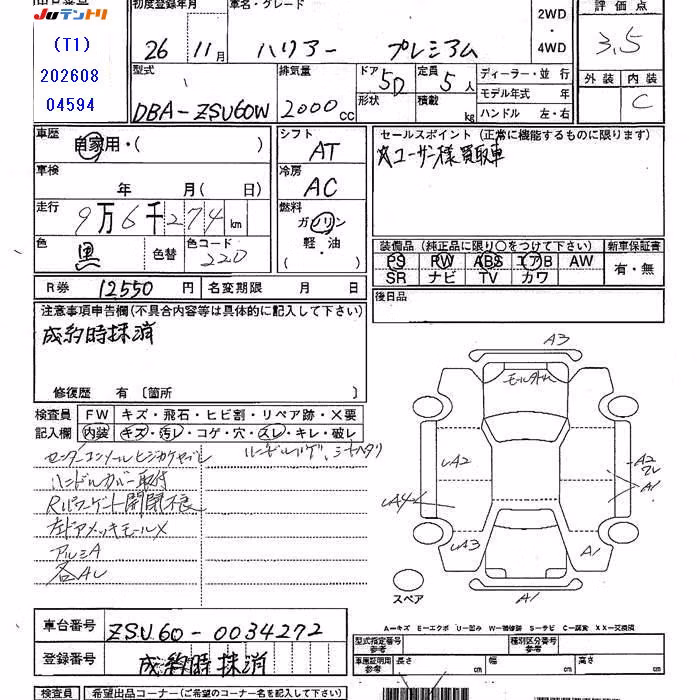 Juテントリ
(T1)
202608
04594
初度登録年月
26年 11月
車名・グレード
ハリアー プレミアム
2WD
・
4WD
評価点
3.5
外装 内装
C
型式
DBA-ZSU60W
排気量
2000cc
ドア 5D
形状
定員 5人
積載 kg
ディーラー・並行
モデル年式 年
ハンドル 左・右
車歴
自家用・( )
車検
年 月( 日)
走行
9万6千274km
色
黒
色替
色コード
220
シフト
AT
冷房
AC
燃料
ガソリン
軽・油
( )
セールスポイント(正常に機能するものに限ります)
☆ユーザー様買取車
装備品(純正品に限り○をつけて下さい)
新車保証書
PS PW ABS エアB AW
SR ナビ TV カワ
有・無
R券 12550円
名変期限 月 日
後日品
注意事項申告欄(不具合内容等は具体的に記入して下さい)
成約時抹消
修復歴 有〔箇所 〕
検査員
記入欄
FW キズ・飛石・ヒビ割・リペア跡・X要
内装 キズ・汚レ・コゲ・穴・スレ・キレ・破レ
センターコンソールヒジカケヤブレ
ハンドルカバー取付
Rパワーゲート開閉不良
左ドアメッキモールX
アルミA
各AU
A3
UA2
UA4
UA3
A2
A1
A1
A1
スペア
A－キズ E－エクボ U－凹み W－補修跡 S－サビ C－腐食 XX－交換済
車台番号 ZSU60-0034272
登録番号 成約時抹消
型式指定番号
種別区分番号
車庫証明用参考
長さ cm
幅 cm
高さ cm
検査員
希望出品コーナー(ご希望のコーナー名を記入下さい)